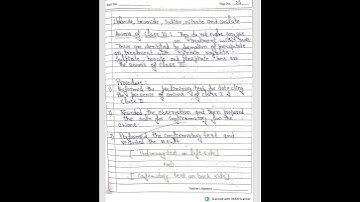 Page No. 25
Chloride, bromide, Iodide nitrate and oxalate
Anions of class III : They do not evolve any gas
on treatment with acids
These are identified by formation of precipitate
on treatment with
Sulphate, borate and phosphate ions are
the anions of class III.
Procedure :
1) Performed the preliminary test for detecting
the presence of anions of class I &
class II
2) Recorded the observation and then prepared
the salt for confirmatory
anions.
3) Performed the confirmatory test and
recorded the result
[ Preliminary test on left side ]
and
[ Confirmatory test on back side ]
Teacher's Signature
Scanned with OKEN Scanner